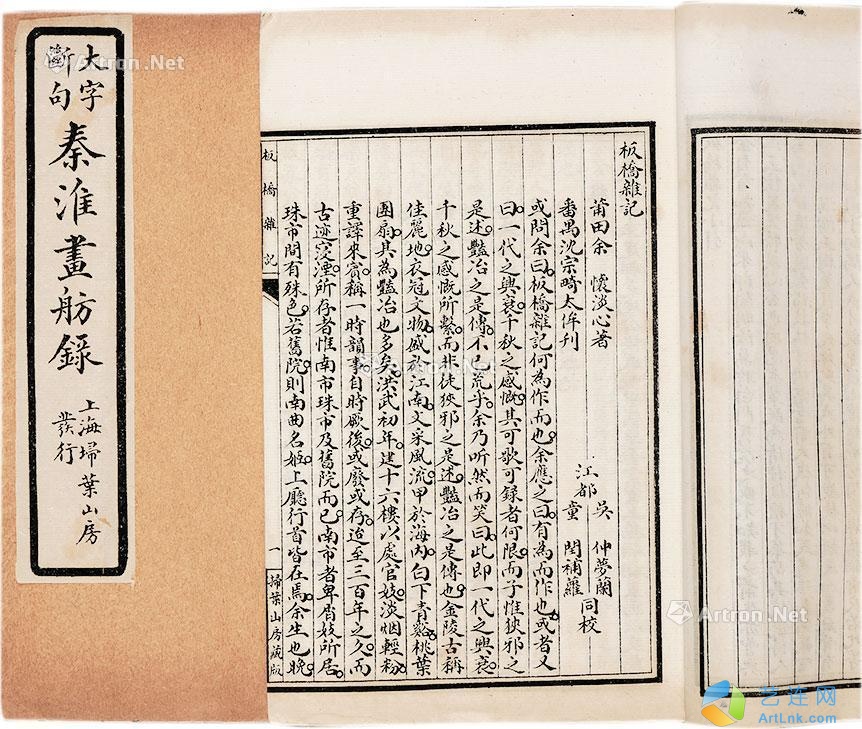 大字
斷句
秦淮畫舫錄
上海埽葉山房
發行
板橋雜記
莆田余　懷淡心著
番禺沈宗畸太侔刋
江都
吳　仲夢蘭
童　閏補蘿
同校
或問余曰板橋雜記何為作而也余應之曰有為而作也或者又
曰一代之興衰千秋之感慨其可歌可録者何限而子惟狹邪之
是述豔冶之是傳不已荒乎余乃听然而笑曰此即一代之興衰
千秋之感慨所繫而非徒狹邪之是述豔冶之是傳也金陵古稱
佳麗地衣冠文物盛於江南文采風流甲於海內白下青谿桃葉
團扇其為豔冶也多矣洪武初年建十六樓以處官妓淡烟輕粉
重譯來賓稱一時韻事自時厥後或廢或存迨至三百年之久而
古迹寖湮所存者惟南市珠市及舊院而已南市者卑屑妓所居
珠市間有殊色若舊院則南曲名姬上廳行首皆在焉余生也晚
板橋雜記
一
掃葉山房藏版
Artron.Net
Artron.Net
Artron.Net
Artron.Net
艺连网
ArtLnk.com